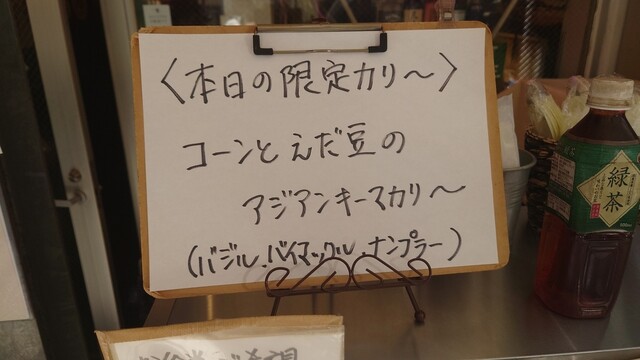 〈本日の限定カリ～〉
コーンとえだ豆の
アジアンキーマカリ～
(バジル.バイマックル.ナンプラー)
緑茶